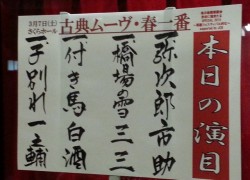 3月7日(土)
さくらホール
古典ムーヴ・春一番
本日の演目
一、弥次郎 市助
一、橋場の雪 三三
一、付き馬 白酒
一、子別れ 一之輔